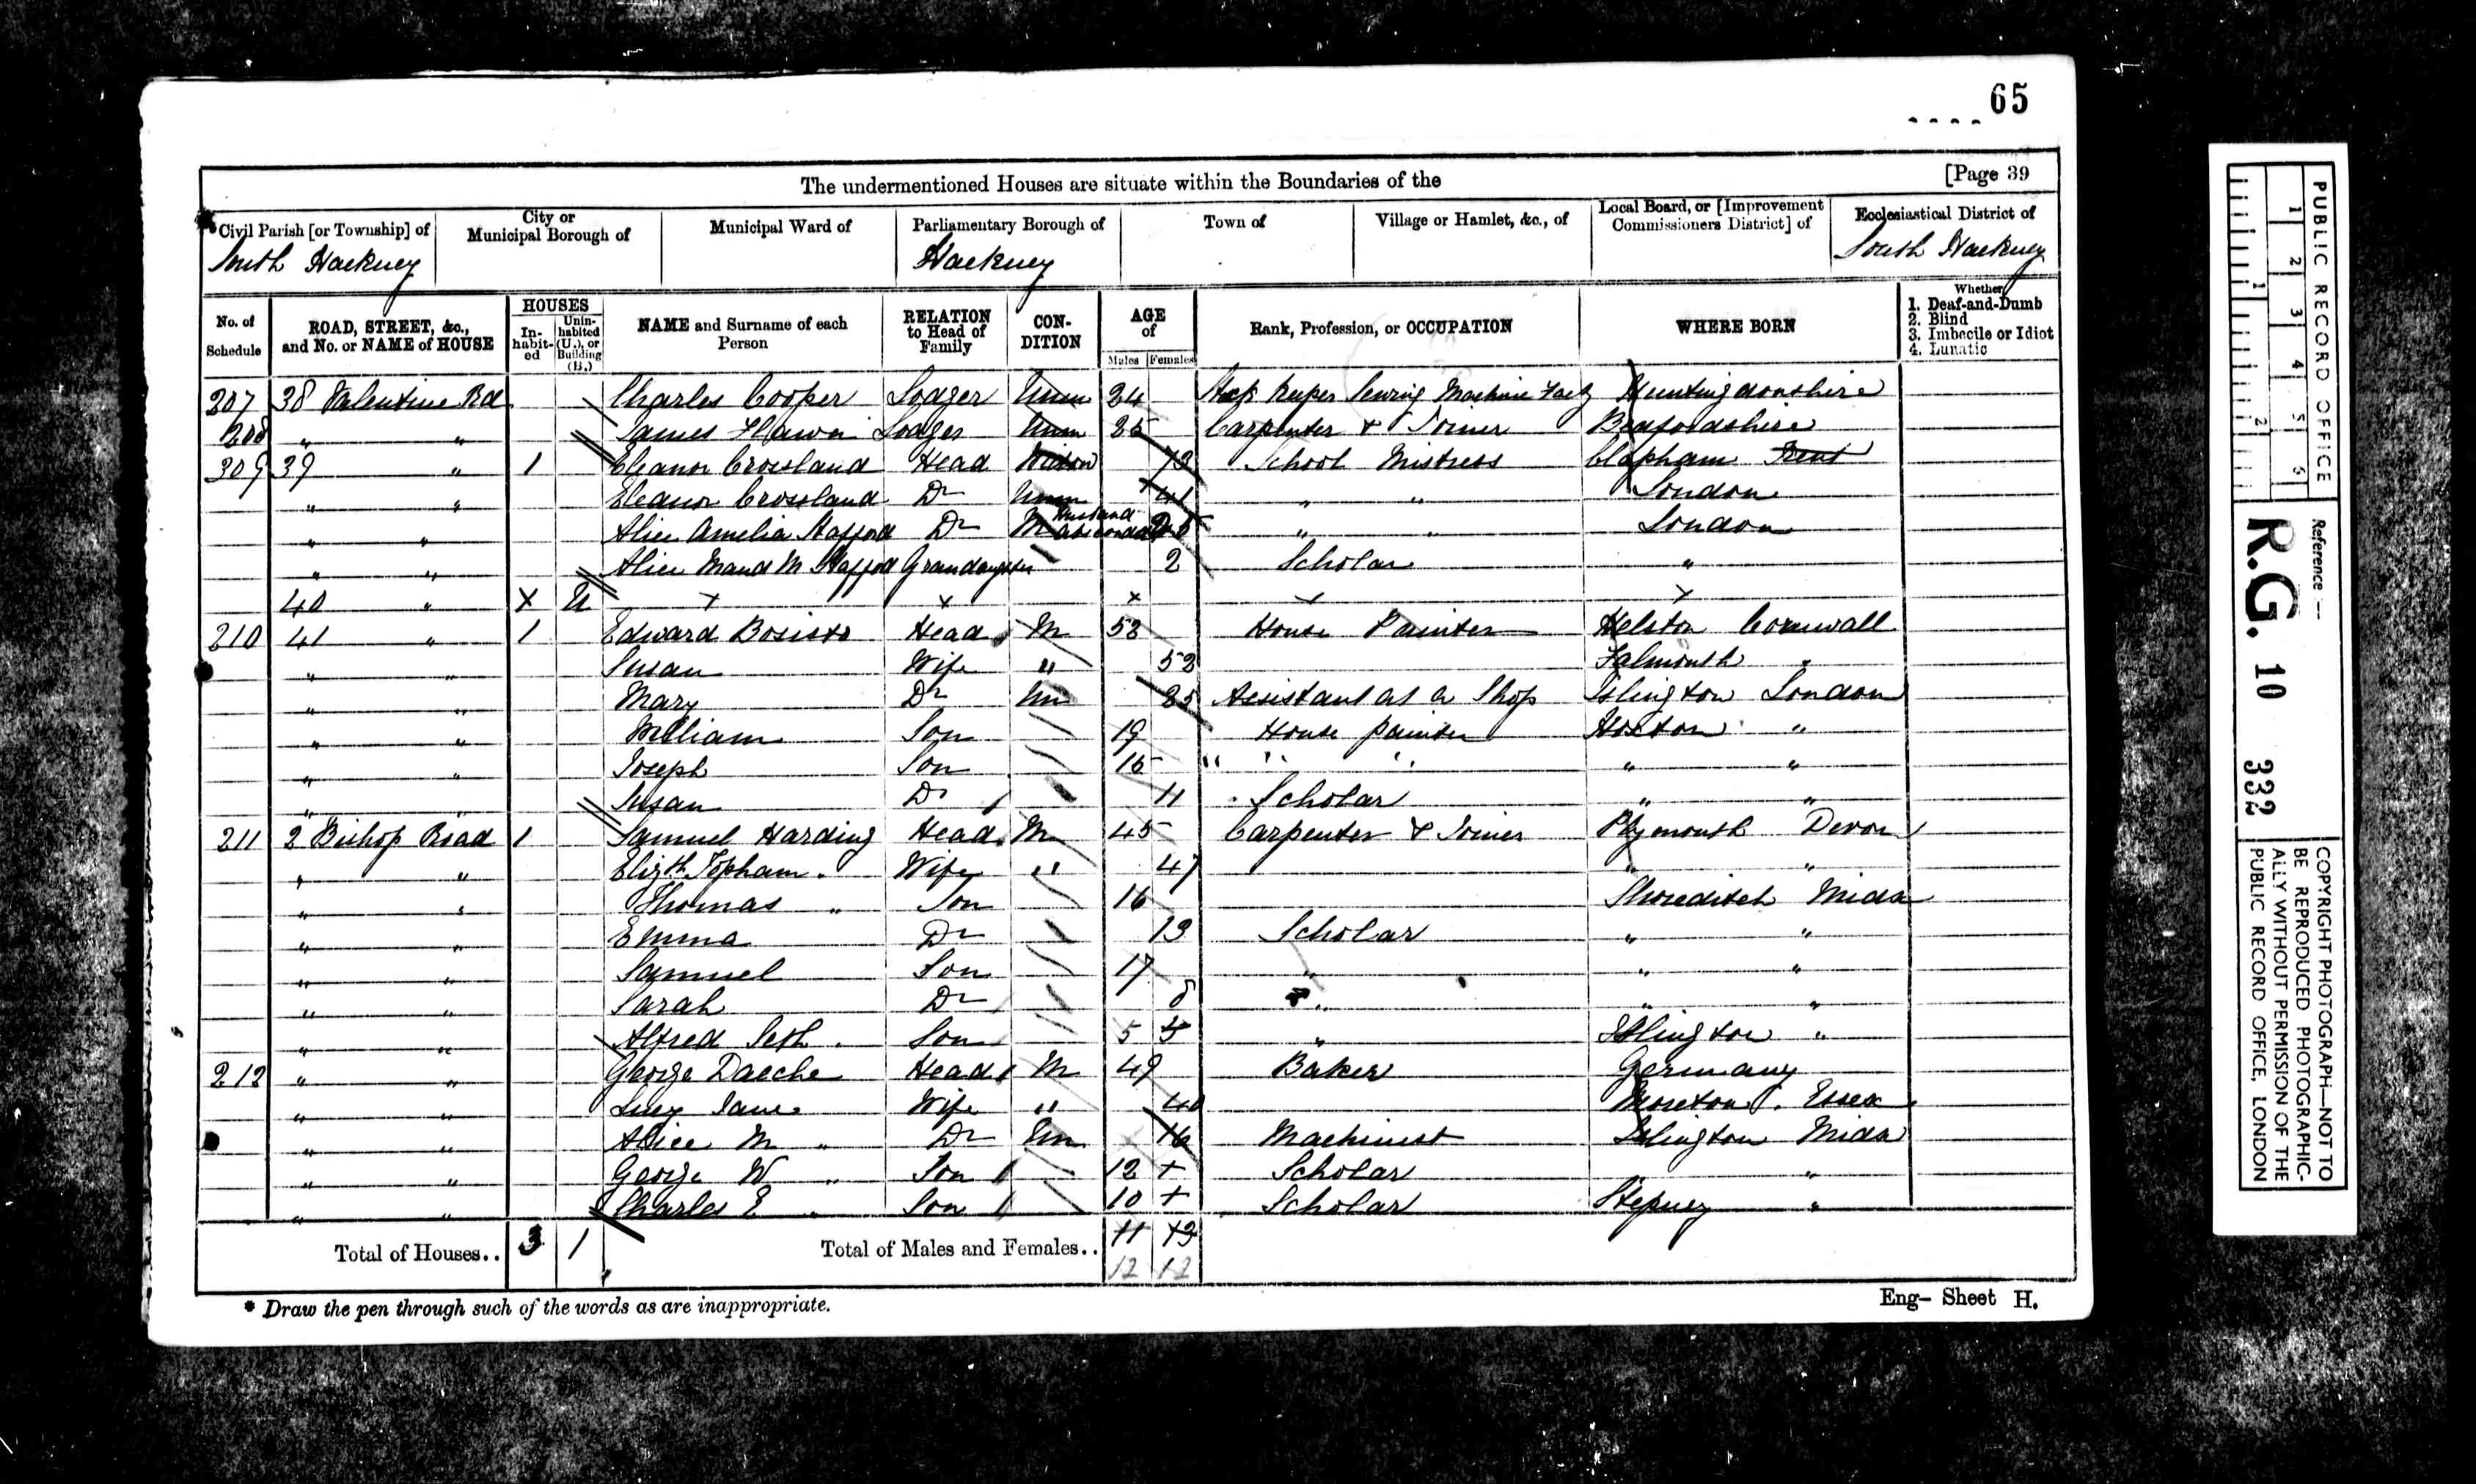 65
The undermentioned Houses are situate within the Boundaries of the [Page 39
Civil Parish [or Township] of City or Municipal Borough of Municipal Ward of Parliamentary Borough of Town of Village or Hamlet, &c., of Local Board, or [Improvement Commissioners District] of Ecclesiastical District of
South Hackney Hackney South Hackney
No. of Schedule ROAD, STREET, &c., and No. or NAME of HOUSE HOUSES In-habit-ed Unin-habited (U.), or Building (B.) NAME and Surname of each Person RELATION to Head of Family CON-DITION AGE of Males Females Rank, Profession, or OCCUPATION WHERE BORN Whether 1. Deaf-and-Dumb 2. Blind 3. Imbecile or Idiot 4. Lunatic
207 38 Valentine Rd Charles Cooper Lodger Unm 24 Keeper Sewing Machine Huntingdonshire
208 " " James Lodger Unm 25 Carpenter & Joiner Bedfordshire
309 39 " 1 Eleanor Crossland Head Widow 73 School Mistress Clapham Kent
" " Eleanor Crossland Dr Unm 41 " " London
" " Alice Amelia Dr M Husband " " London
" " Alice Maud M Grandaughter 2 Scholar "
40 " X U x x x x x
210 41 " 1 Edward Bosisto Head M 53 House Painter Helston Cornwall
" " Susan Wife " 53 Falmouth "
" " Mary Dr Un 25 Assistant at a Shop Islington London
" " William Son 19 House painter Hoxton "
" " Joseph Son 15 " " " " "
" " Susan Dr 11 Scholar " "
211 2 Bishop Road 1 Samuel Harding Head M 45 Carpenter & Joiner Plymouth Devon
" " Elizth Topham Wife " 47 " "
" " Thomas " Son 16 Shoreditch Midx
" " Emma Dr 13 Scholar " "
" " Samuel Son 17 " " "
" " Sarah Dr 8 " " "
" " Alfred Seth Son 5 5 " Islington "
212 " " George Daeche Head M 49 Baker Germany
" " Lucy Jane Wife " 40 Moreton Essex
" " Alice M " Dr Un 16 Machinist Islington Midx
" " George W " Son 12 + Scholar "
" " Charles E " Son 10 + Scholar Stepney "
Total of Houses.. 3 1 Total of Males and Females.. 11 13
12 12
* Draw the pen through such of the words as are inappropriate. Eng- Sheet H.
PUBLIC RECORD OFFICE
1 2 3 4 5 6
1 2
Reference :—
R.G. 10 332
COPYRIGHT PHOTOGRAPH—NOT TO
BE REPRODUCED PHOTOGRAPHIC-
ALLY WITHOUT PERMISSION OF THE
PUBLIC RECORD OFFICE, LONDON